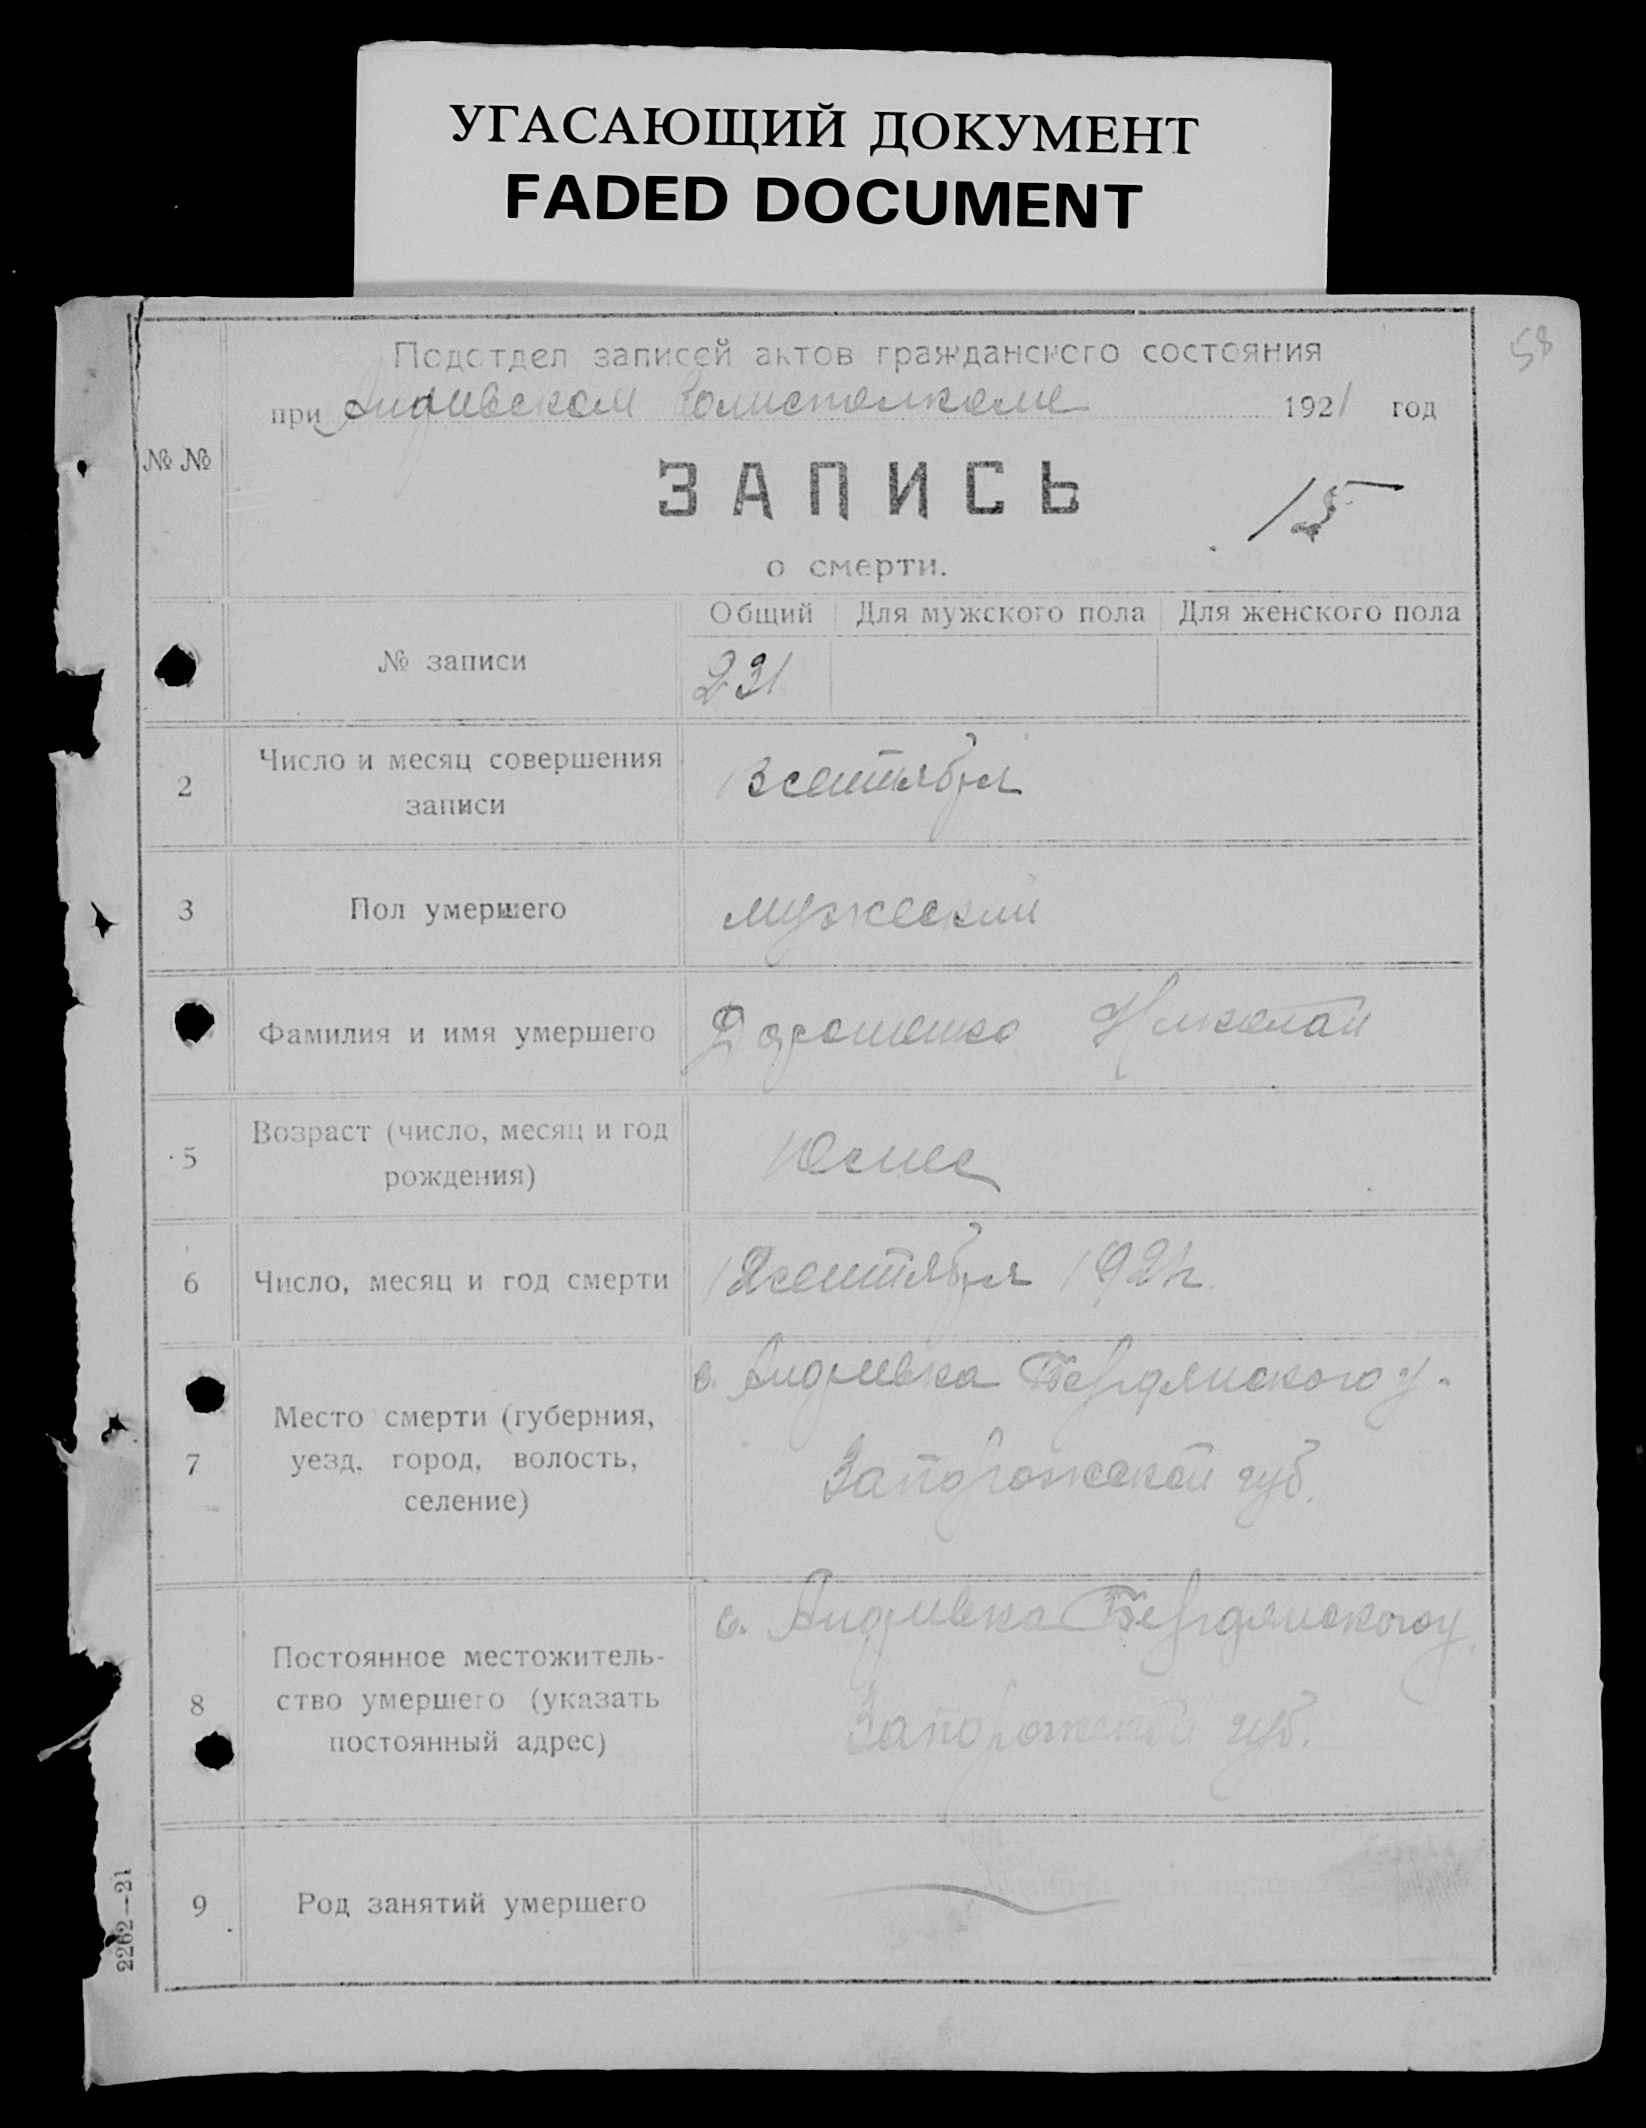 УГАСАЮЩИЙ ДОКУМЕНТ
FADED DOCUMENT
58
Подотдел записей актов гражданского состояния
при Андриевском Волисполкоме 1921 год
№ №
ЗАПИСЬ
15
о смерти.
Общий Для мужского пола Для женского пола
№ записи 231
2 Число и месяц совершения
записи
13 сентября
3 Пол умершего мужеский
Фамилия и имя умершего Дорошенко Николай
5 Возраст (число, месяц и год
рождения)
10 мес
6 Число, месяц и год смерти 12 сентября 1921 г.
7 Место смерти (губерния,
уезд, город, волость,
селение)
с. Андриевка Бердянского у.
Запорожской губ.
8 Постоянное местожитель-
ство умершего (указать
постоянный адрес)
с. Андриевка Бердянского у.
Запорожской губ.
9 Род занятий умершего
2262—21